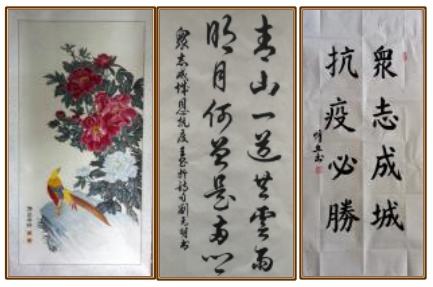 青山一道共雲雨
明月何曾是兩鄉
衆志成城同心抗疫
衆志成城
抗疫必勝